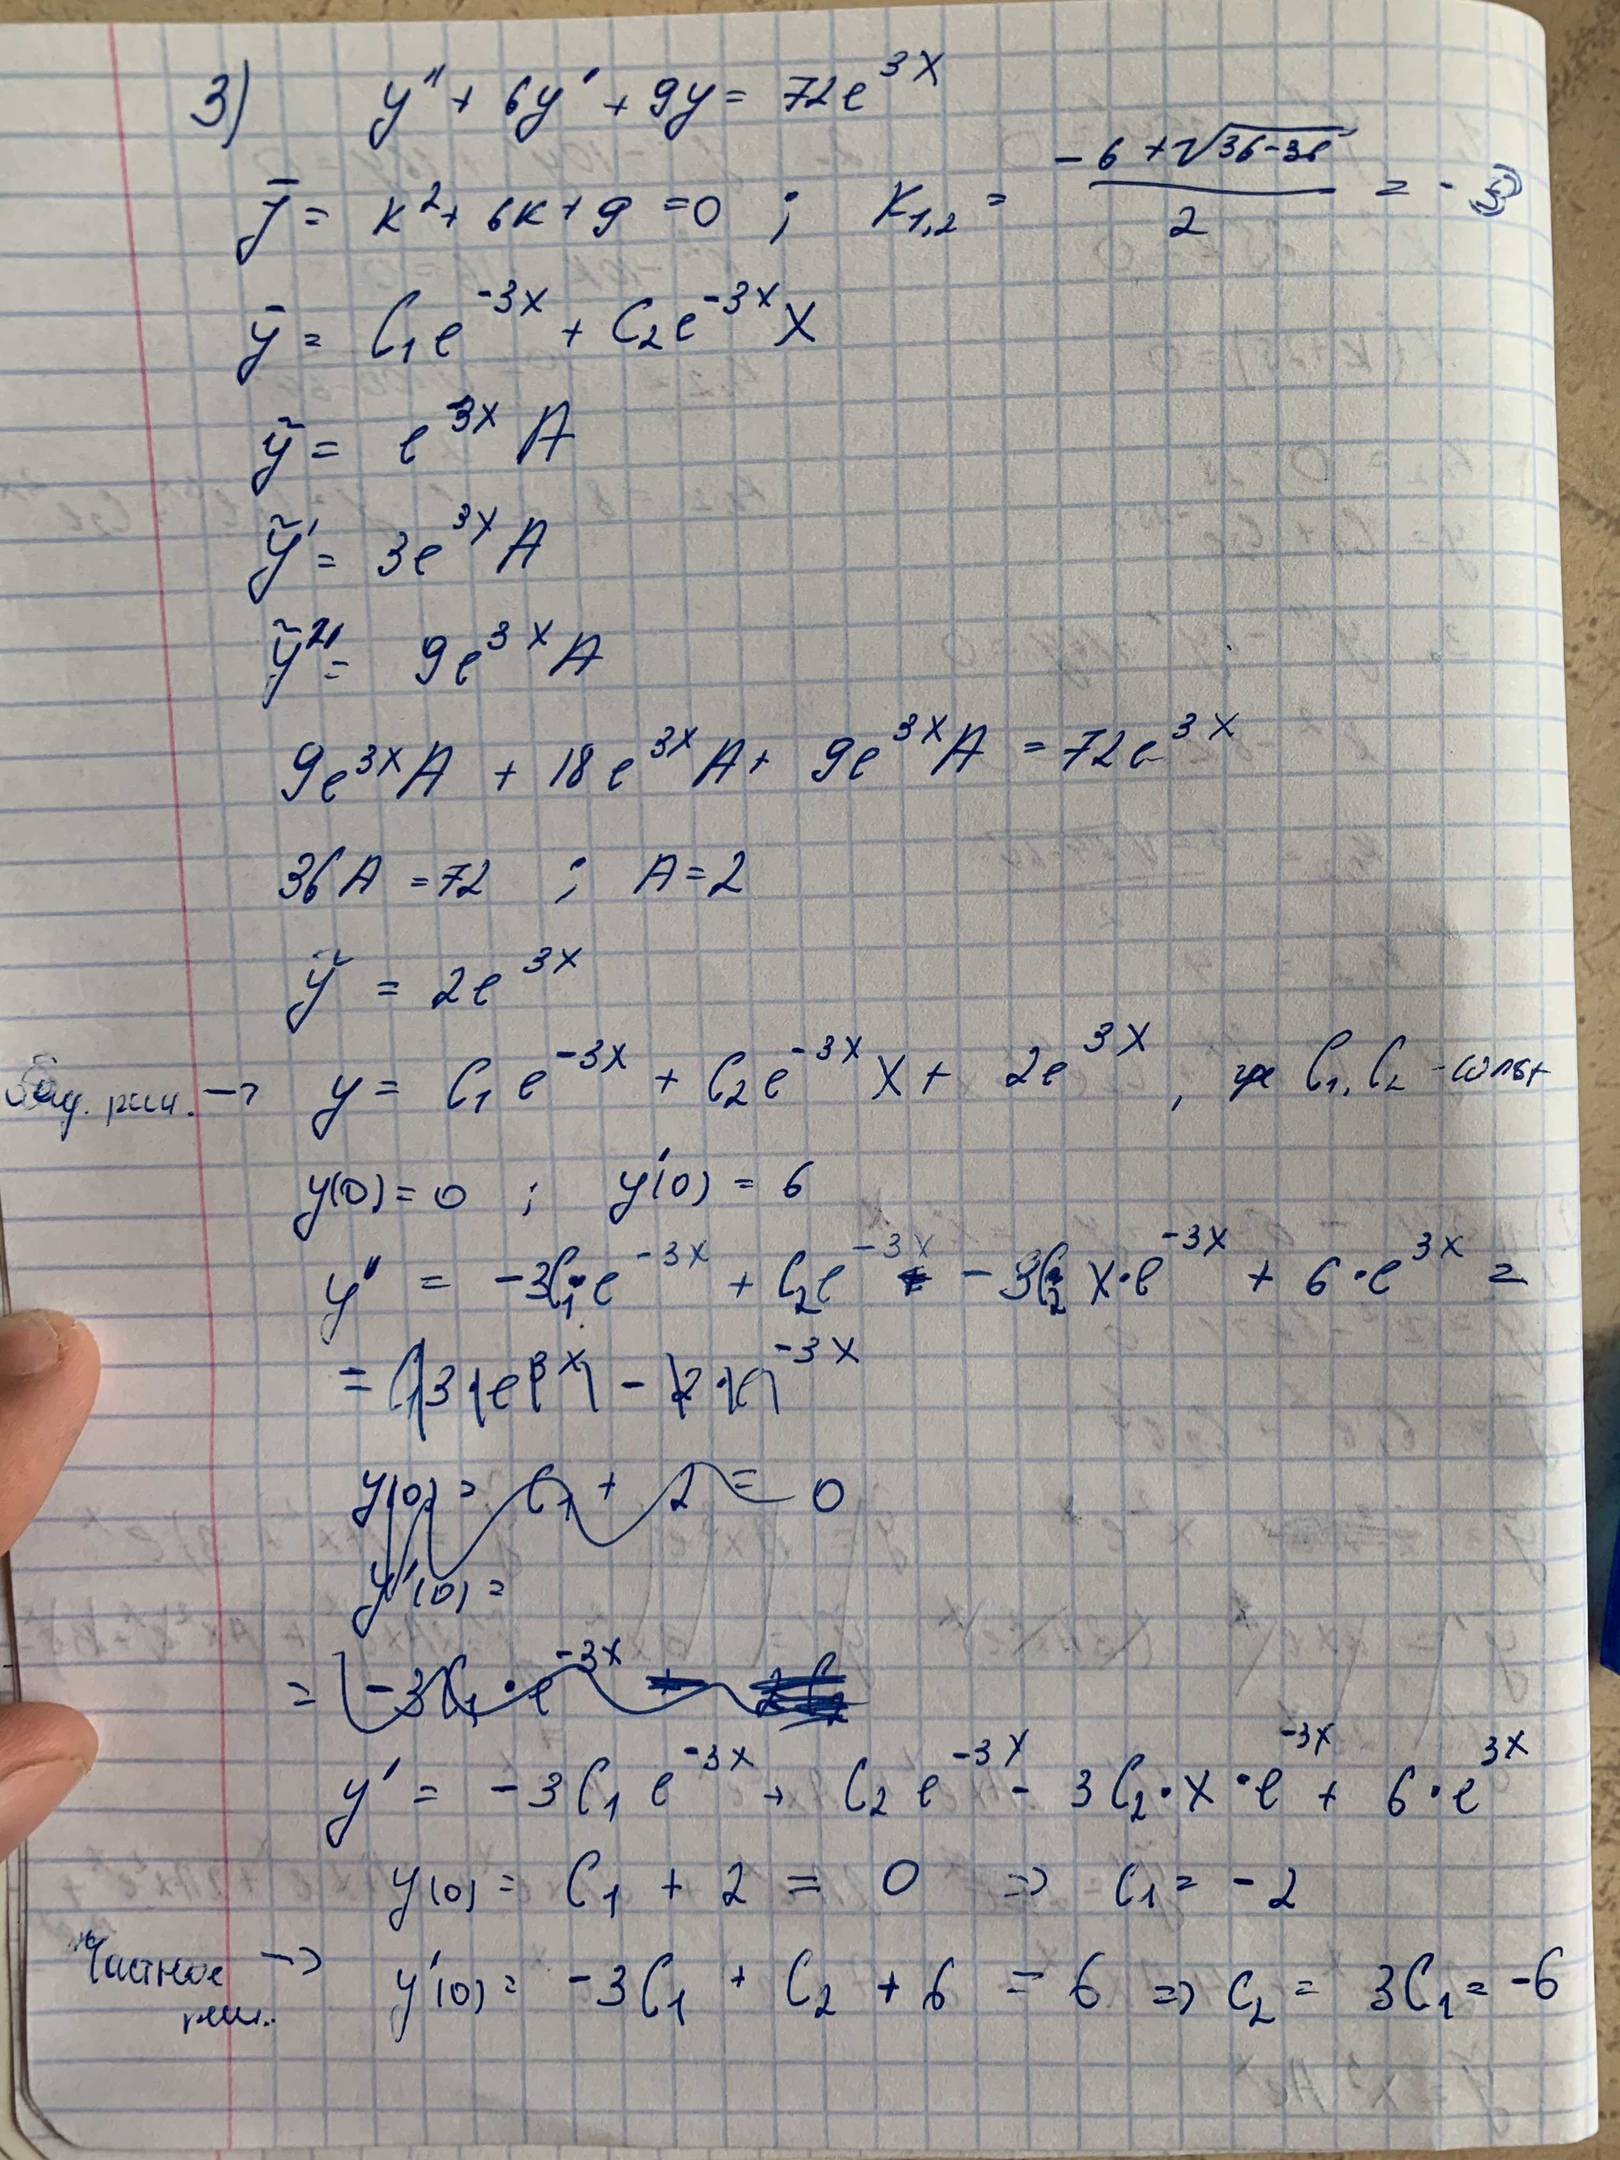 3) y'' + 6y' + 9y = 72e^{3x}
ȳ = k² + 6k + 9 = 0 ; k_{1,2} = (-6 + √(36-36))/2 = -3
ȳ = C₁e^{-3x} + C₂e^{-3x}x
ỹ = e^{3x} A
ỹ' = 3e^{3x} A
ỹ'' = 9e^{3x} A
9e^{3x}A + 18e^{3x}A + 9e^{3x}A = 72e^{3x}
36A = 72 ; A = 2
ỹ = 2e^{3x}
реш. → y = C₁e^{-3x} + C₂e^{-3x}x + 2e^{3x}, где C₁, C₂ -
y(0) = 0 ; y'(0) = 6
y' = -3C₁·e^{-3x} + C₂e^{-3x} - 3C₂x·e^{-3x} + 6·e^{3x} =
y(0) = C₁ + 2 = 0
y'(0) =
= -3C₁·e^{-3x}
y' = -3C₁e^{-3x} + C₂e^{-3x} - 3C₂·x·e^{-3x} + 6·e^{3x}
y(0) = C₁ + 2 = 0 ⇒ C₁ = -2
Частное реш. → y'(0) = -3C₁ + C₂ + 6 = 6 ⇒ C₂ = 3C₁ = -6